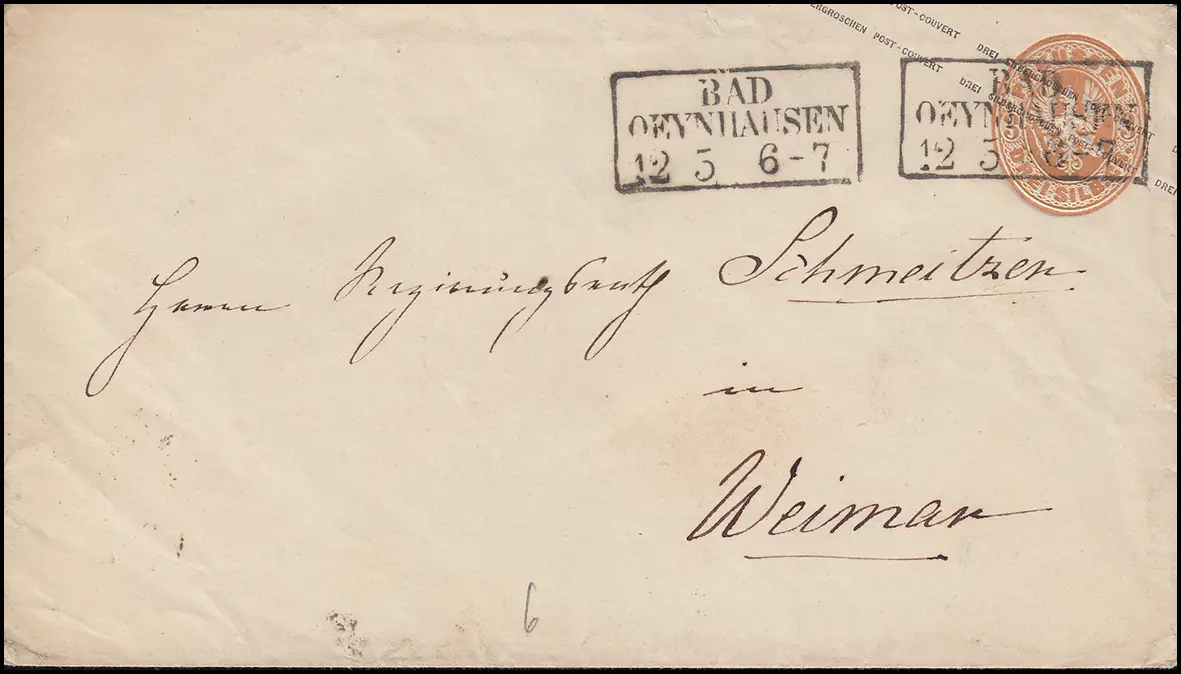 ERGROSCHEN POST-COUVERT DREI SILBERGROSCHEN POST-COUVERT
POST-COUVERT DREI SILBERGROSCHEN POST-COUVERT DREI
BAD
OEYNHAUSEN
12 5 6-7
BAD
OEYN
12 5 6-7
3 DREI SILB.GR. 3
Herrn Regierungsrath Schmeitzer
in
Weimar
6